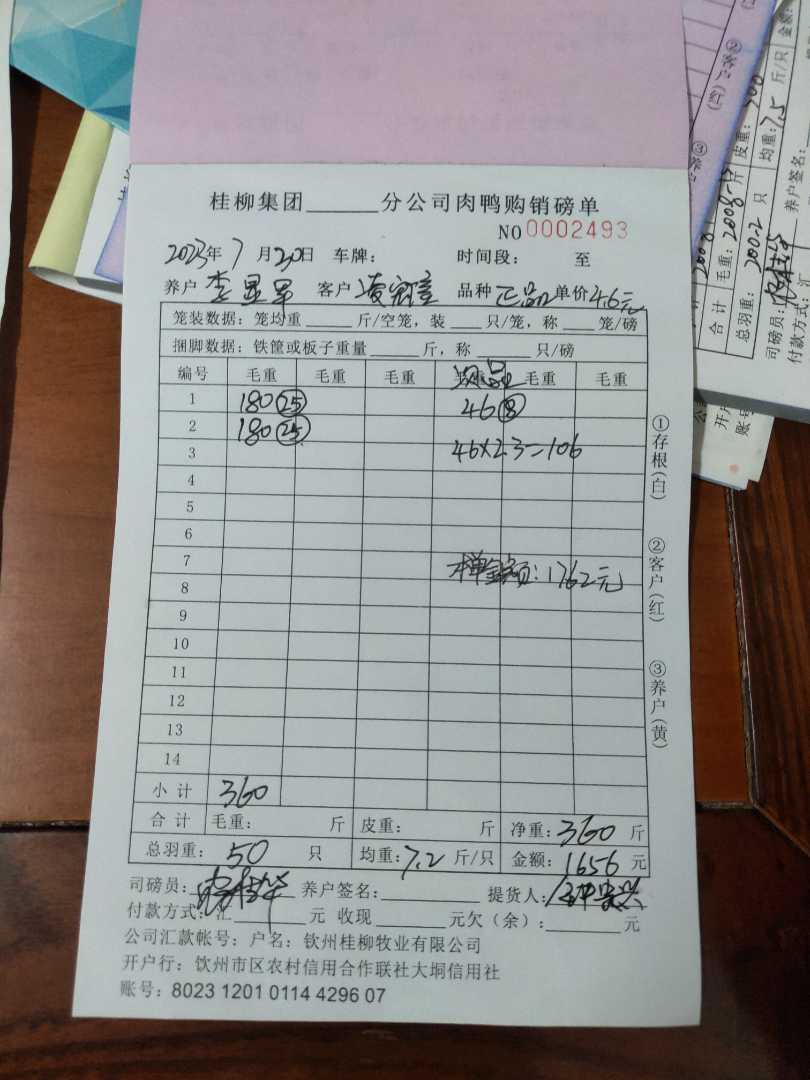 桂柳集团______分公司肉鸭购销磅单
NO 0002493
2023年 7 月 20日 车牌： 时间段： 至
养户 李 客户 凌 品种 正品 单价 4.6元
笼装数据：笼均重____斤/空笼，装___只/笼，称____笼/磅
捆脚数据：铁筐或板子重量_____斤，称_____只/磅
编号 毛重 毛重 毛重 毛重 毛重 毛重
1 180 (25) 46 (8)
2 180 (25)
3 46×2.3=106
4
5
6
7 单金额：1762元
8
9
10
11
12
13
14
小计 360
合计 毛重： 斤 皮重： 斤 净重：360 斤
总羽重：50 只 均重：7.2 斤/只 金额：1656 元
司磅员： 养户签名：________ 提货人：
付款方式：汇______元 收现______元欠（余）：______元
公司汇款帐号：户名：钦州桂柳牧业有限公司
开户行：钦州市区农村信用合作联社大垌信用社
账号：8023 1201 0114 4296 07
①存根(白)
②客户(红)
③养户(黄)
合计 毛重：2008斤 皮重：
总羽重：200.2 只 均重：7.5 斤/只 金额：
司磅员： 养户签名：
付款方式：汇
③养户